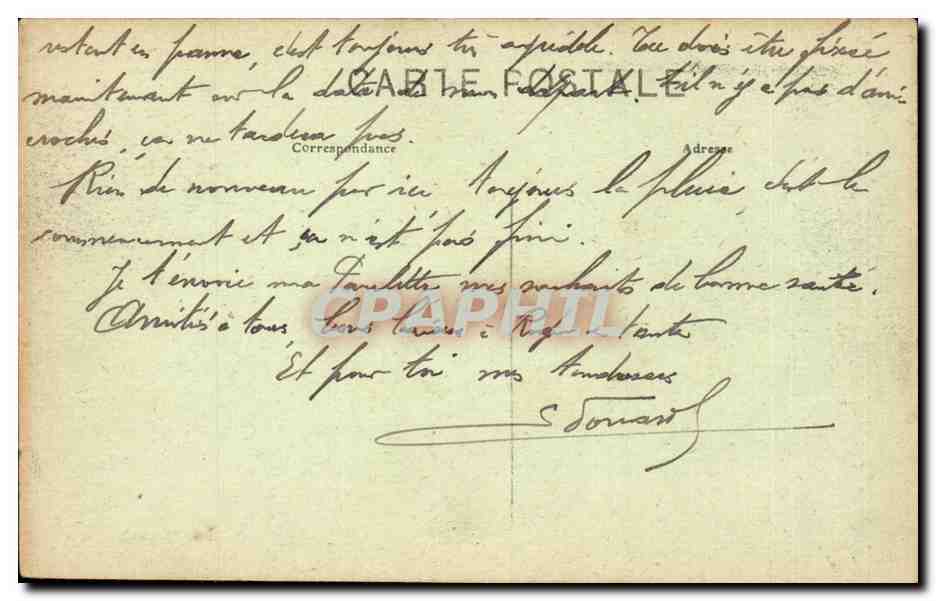 restent en panne, c'est toujours très agréable. Tu dois être fixée
CARTE POSTALE
maintenant sur la date de mon départ. S'il n'y a pas d'ani
croches, ça ne tardera pas.
Correspondance
Adresse
Rien de nouveau par ici toujours la pluie, c'est le
commencement et ça n'est pas fini.
Je t'envoie ma Paulette mes souhaits de bonne santé.
CPAPHIL
Amitiés à tous bons baisers à et tante
Et pour toi mes tendresses
Edouard